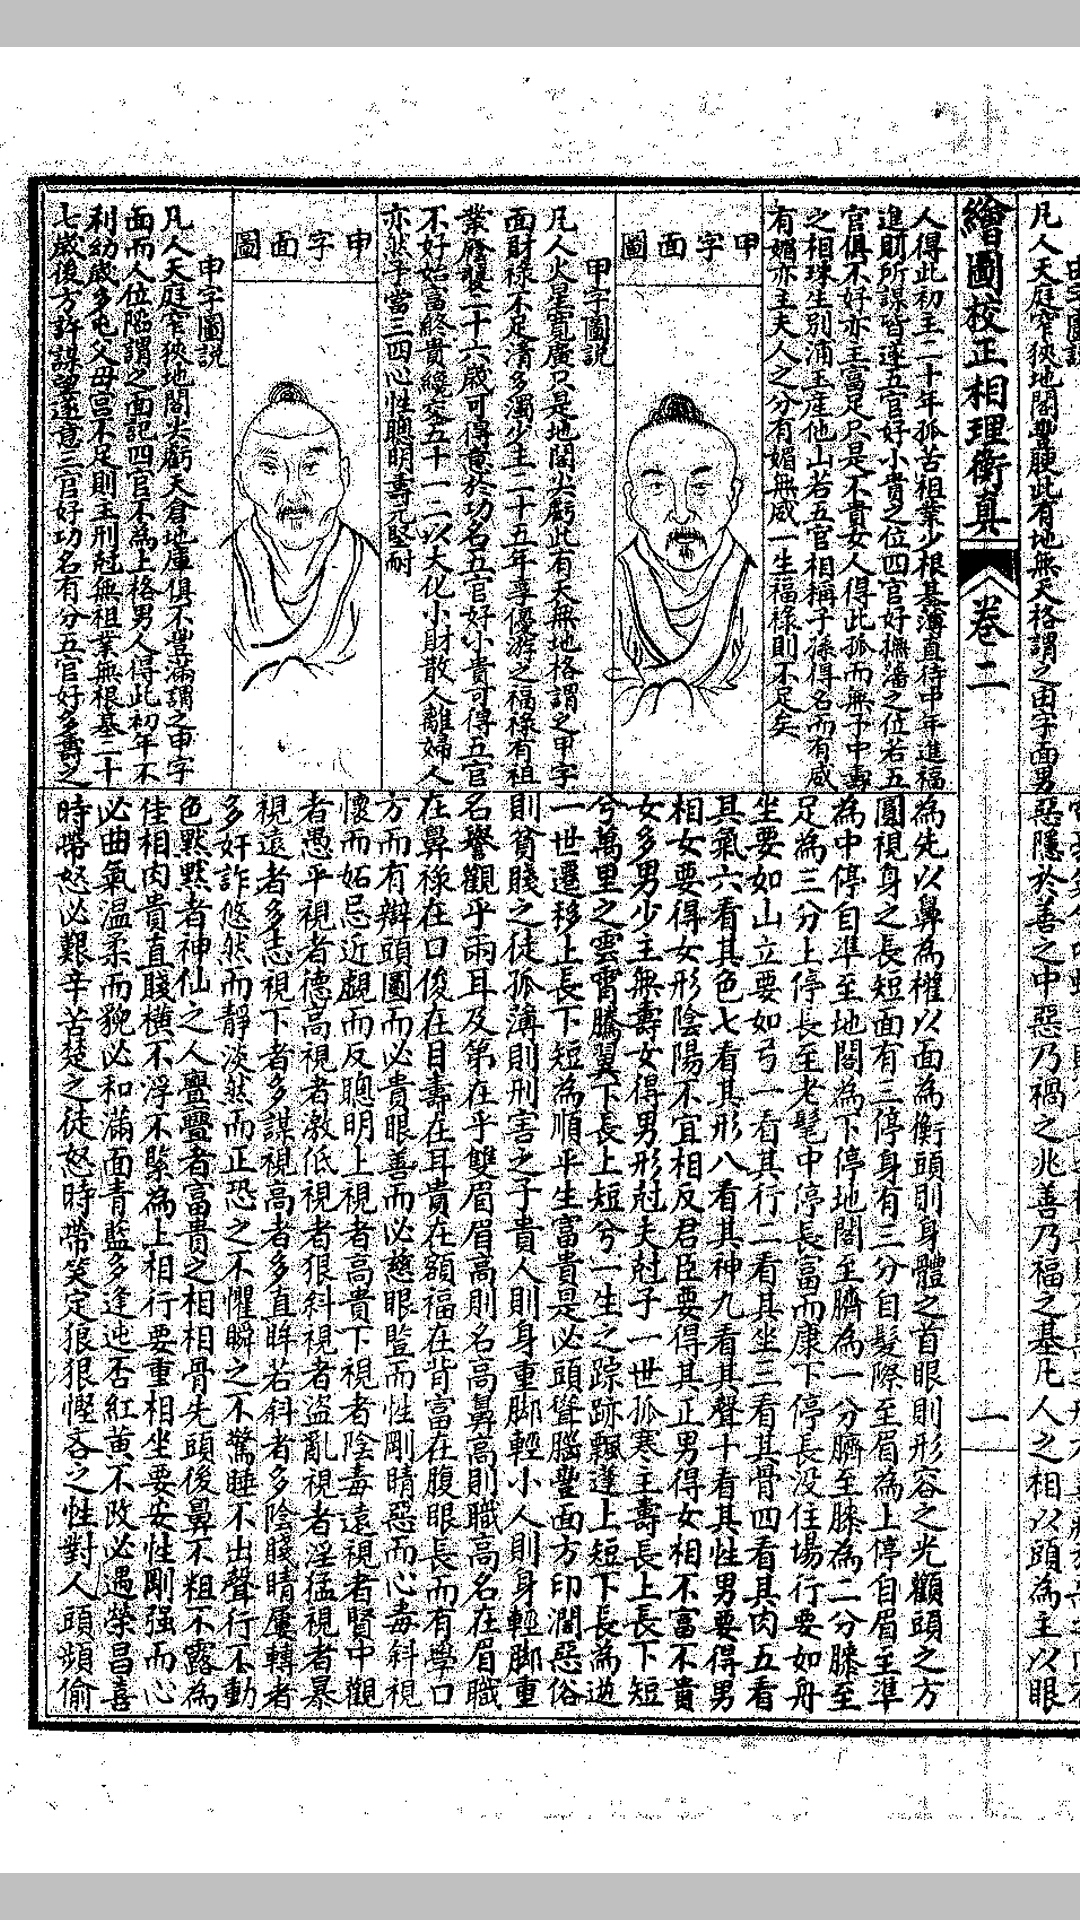 凡人天庭窄狹地閣豐腴此有地無天格謂之由字面男
惡隱於善之中惡乃禍之兆善乃福之基凡人之相以頭為主以眼
繪圖校正相理衡真
卷二
一
人得此初主二十年孤苦祖業少根基薄直待中年進福
進財所謀皆遂五官好小貴之位四官好撫藩之位若五
官俱不好亦主富足只是不貴女人得此孤而無子中壽
之相珠生別涌玉產他山若五官相稱子孫得名而有威
有媚亦主夫人之分有媚無威一生福祿則不足矣
甲字面圖
甲字圖説
凡人火星寬廣只是地閣尖虧此有天無地格謂之甲字
面財祿不足清多濁少主二十五年享優游之福祿有祖
業廕襲二十六歲可得意於功名五官好小貴可得五官
不好始富終貴纔交五十一二以大化小財散人離婦人
亦然子當三四心性聰明壽元堅耐
申字面圖
申字圖説
凡人天庭窄狹地閣尖虧天倉地庫俱不豐滿謂之申字
面而人位陷謂之面記四官不為上格男人得此初年不
利幼歲多屯父母宮不足則主刑尅無祖業無根基二十
七歲後方許謀望遂意三官好功名有分五官好多壽之
為先以鼻為權以面為衡頭則身體之首眼則形容之光觀頭之方
圓視身之長短面有三停身有三分自髮際至眉為上停自眉至準
為中停自準至地閣為下停地閣至臍為一分臍至膝為二分膝至
足為三分上停長至老髦中停長富而康下停長没住場行要如舟
坐要如山立要如弓一看其行二看其坐三看其骨四看其肉五看
其氣六看其色七看其形八看其神九看其聲十看其性男要得男
相女要得女形陰陽不宜相反君臣要得其正男得女相不富不貴
女多男少主無壽女得男形尅夫尅子一世孤寒主壽長上長下短
兮萬里之雲霄騰翼下長上短兮一生之踪跡飄蓬上短下長為逆
一世遷移上長下短為順平生富貴是必頭聳腦豐面方印濶惡俗
則貧賤之徒孤薄則刑害之子貴人則身重脚輕小人則身輕脚重
名譽觀乎兩耳及第在乎雙眉眉高則名高鼻高則職高名在眉職
在鼻祿在口俊在目壽在耳貴在額福在背富在腹眼長而有學口
方而有辯頭圓而必貴眼善而必慈眼豎而性剛睛惡而心毒斜視
懷而妬忌近覷而反聰明上視者高貴下視者陰毒遠視者賢中觀
者愚平視者德高視者激低視者狠斜視者盜亂視者淫猛視者暴
視遠者多志視下者多謀視高者多直眸若斜者多陰賤睛屢轉者
多奸詐悠然而靜淡然而正恐之不懼瞬之不驚睡不出聲行不動
色默默者神仙之人亹亹者富貴之相相骨先頭後鼻不粗不露為
佳相肉貴直賤橫不浮不緊為上相行要重相坐要安性剛强而心
必曲氣温柔而貌必和滿面青藍多逢迍否紅黄不改必遇榮昌喜
時帶怒必艱辛苦楚之徒怒時帶笑定狠狠慳吝之性對人頭頻偷